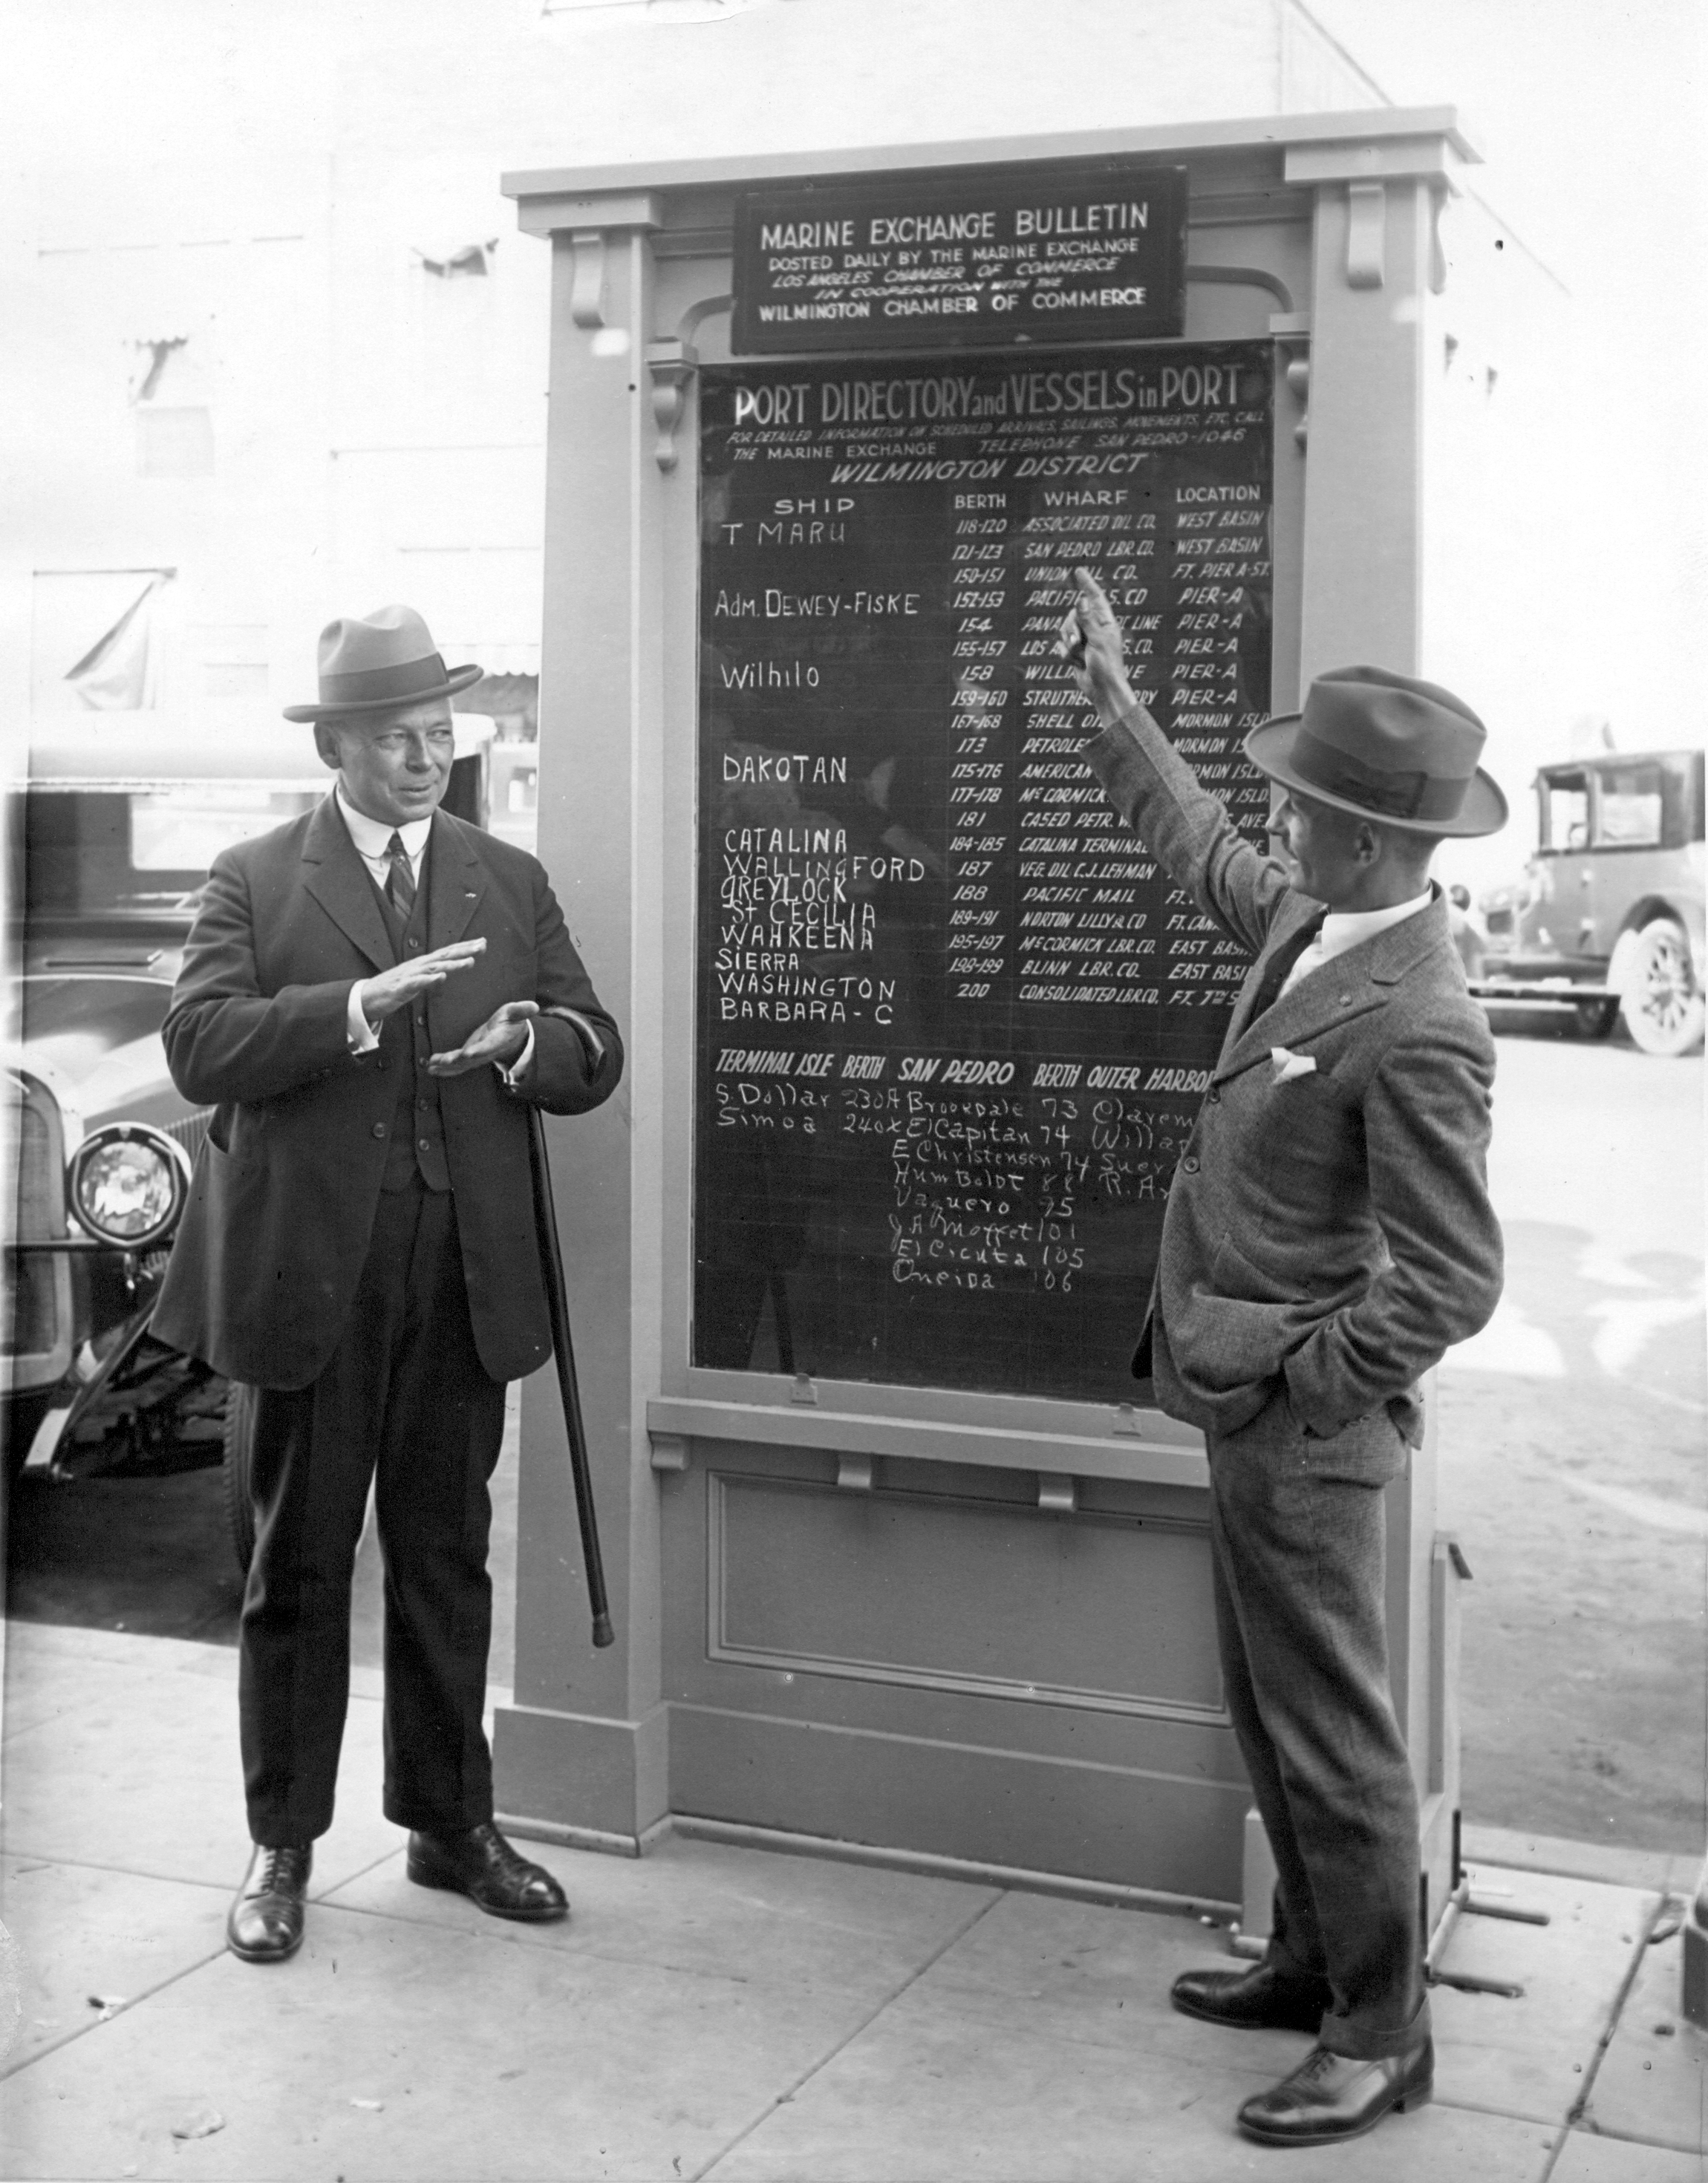 MARINE EXCHANGE BULLETIN
POSTED DAILY BY THE MARINE EXCHANGE
LOS ANGELES CHAMBER OF COMMERCE
IN COOPERATION WITH THE
WILMINGTON CHAMBER OF COMMERCE
PORT DIRECTORY and VESSELS in PORT
FOR DETAILED INFORMATION ON SCHEDULED ARRIVALS, SAILINGS, MOVEMENTS, ETC. CALL
THE MARINE EXCHANGE TELEPHONE SAN PEDRO-1046
WILMINGTON DISTRICT
SHIP BERTH WHARF LOCATION
T MARU 118-120 ASSOCIATED OIL CO. WEST BASIN
121-123 SAN PEDRO LBR. CO. WEST BASIN
150-151 UNION OIL CO. FT. PIER A-ST.
Adm. DEWEY-FISKE 152-153 PACIFIC S. CO PIER-A
154 LINE PIER-A
155-157 LOS S. CO. PIER-A
Wilhilo 158 PIER-A
159-160 PIER-A
167-168 SHELL MORMON ISLD
173 MORMON
DAKOTAN 175-176 AMERICAN ISLD.
177-178 McCORMICK ISLD.
181 CASED PETR. AVE.
CATALINA 184-185 CATALINA TERMINAL
WALLINGFORD 187 VEG. OIL C.J. LEHMAN
GREYLOCK 188 PACIFIC MAIL FT.
St CECILIA 189-191 NORTON LILLY & CO FT.
WAHKEENA 195-197 McCORMICK LBR. CO. EAST
SIERRA 198-199 BLINN LBR. CO. EAST
WASHINGTON 200 CONSOLIDATED LBR. CO. FT. 7TH
BARBARA-C
TERMINAL ISLE BERTH SAN PEDRO BERTH OUTER HARBOR
S. Dollar 230A Brookdale 73
Simoa 240x El Capitan 74
E Christensen 74
HumBoldt 88
Vaquero 95
J.A. Moffet 101
El Cicuta 105
Oneida 106